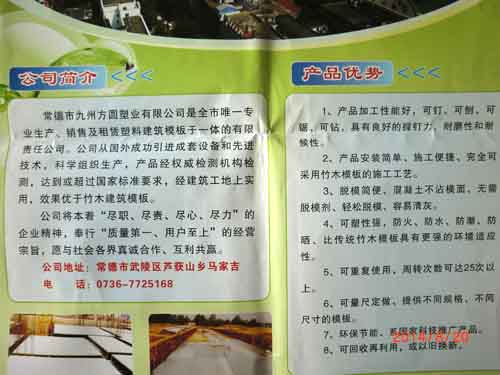 公司简介 <<<
常德市九州方圆塑业有限公司是全市唯一专
业生产、销售及租赁塑料建筑模板于一体的有限
责任公司。公司从国外成功引进成套设备和先进
技术，科学组织生产，产品经权威检测机构检
测，达到或超过国家标准要求，经建筑工地上实
用，效果优于竹木建筑模板。
公司将本着“尽职、尽责、尽心、尽力”的
企业精神，奉行“质量第一、用户至上”的经营
宗旨，愿与社会各界真诚合作、互利共赢。
公司地址：常德市武陵区芦荻山乡马家吉
电 话：0736-7725168
产品优势 <<<
1、产品加工性能好，可钉、可刨、可
锯、可钻，具有良好的握钉力、耐磨性和耐
候性。
2、产品安装简单、施工便捷、完全可
采用竹木模板的施工工艺。
3、脱模简便、混凝土不沾模面、无需
脱模剂、轻松脱模、容易清灰。
4、可塑性强，防火、防水、防潮、防
晒、比传统竹木模板具有更强的环境适应
性。
5、可重复使用，周转次数可达25次以
上。
6、可量尺定做、提供不同规格、不同
尺寸的模板。
7、环保节能、系国家科技推广产品。
8、可回收再利用，或以旧换新。
2014/8/20